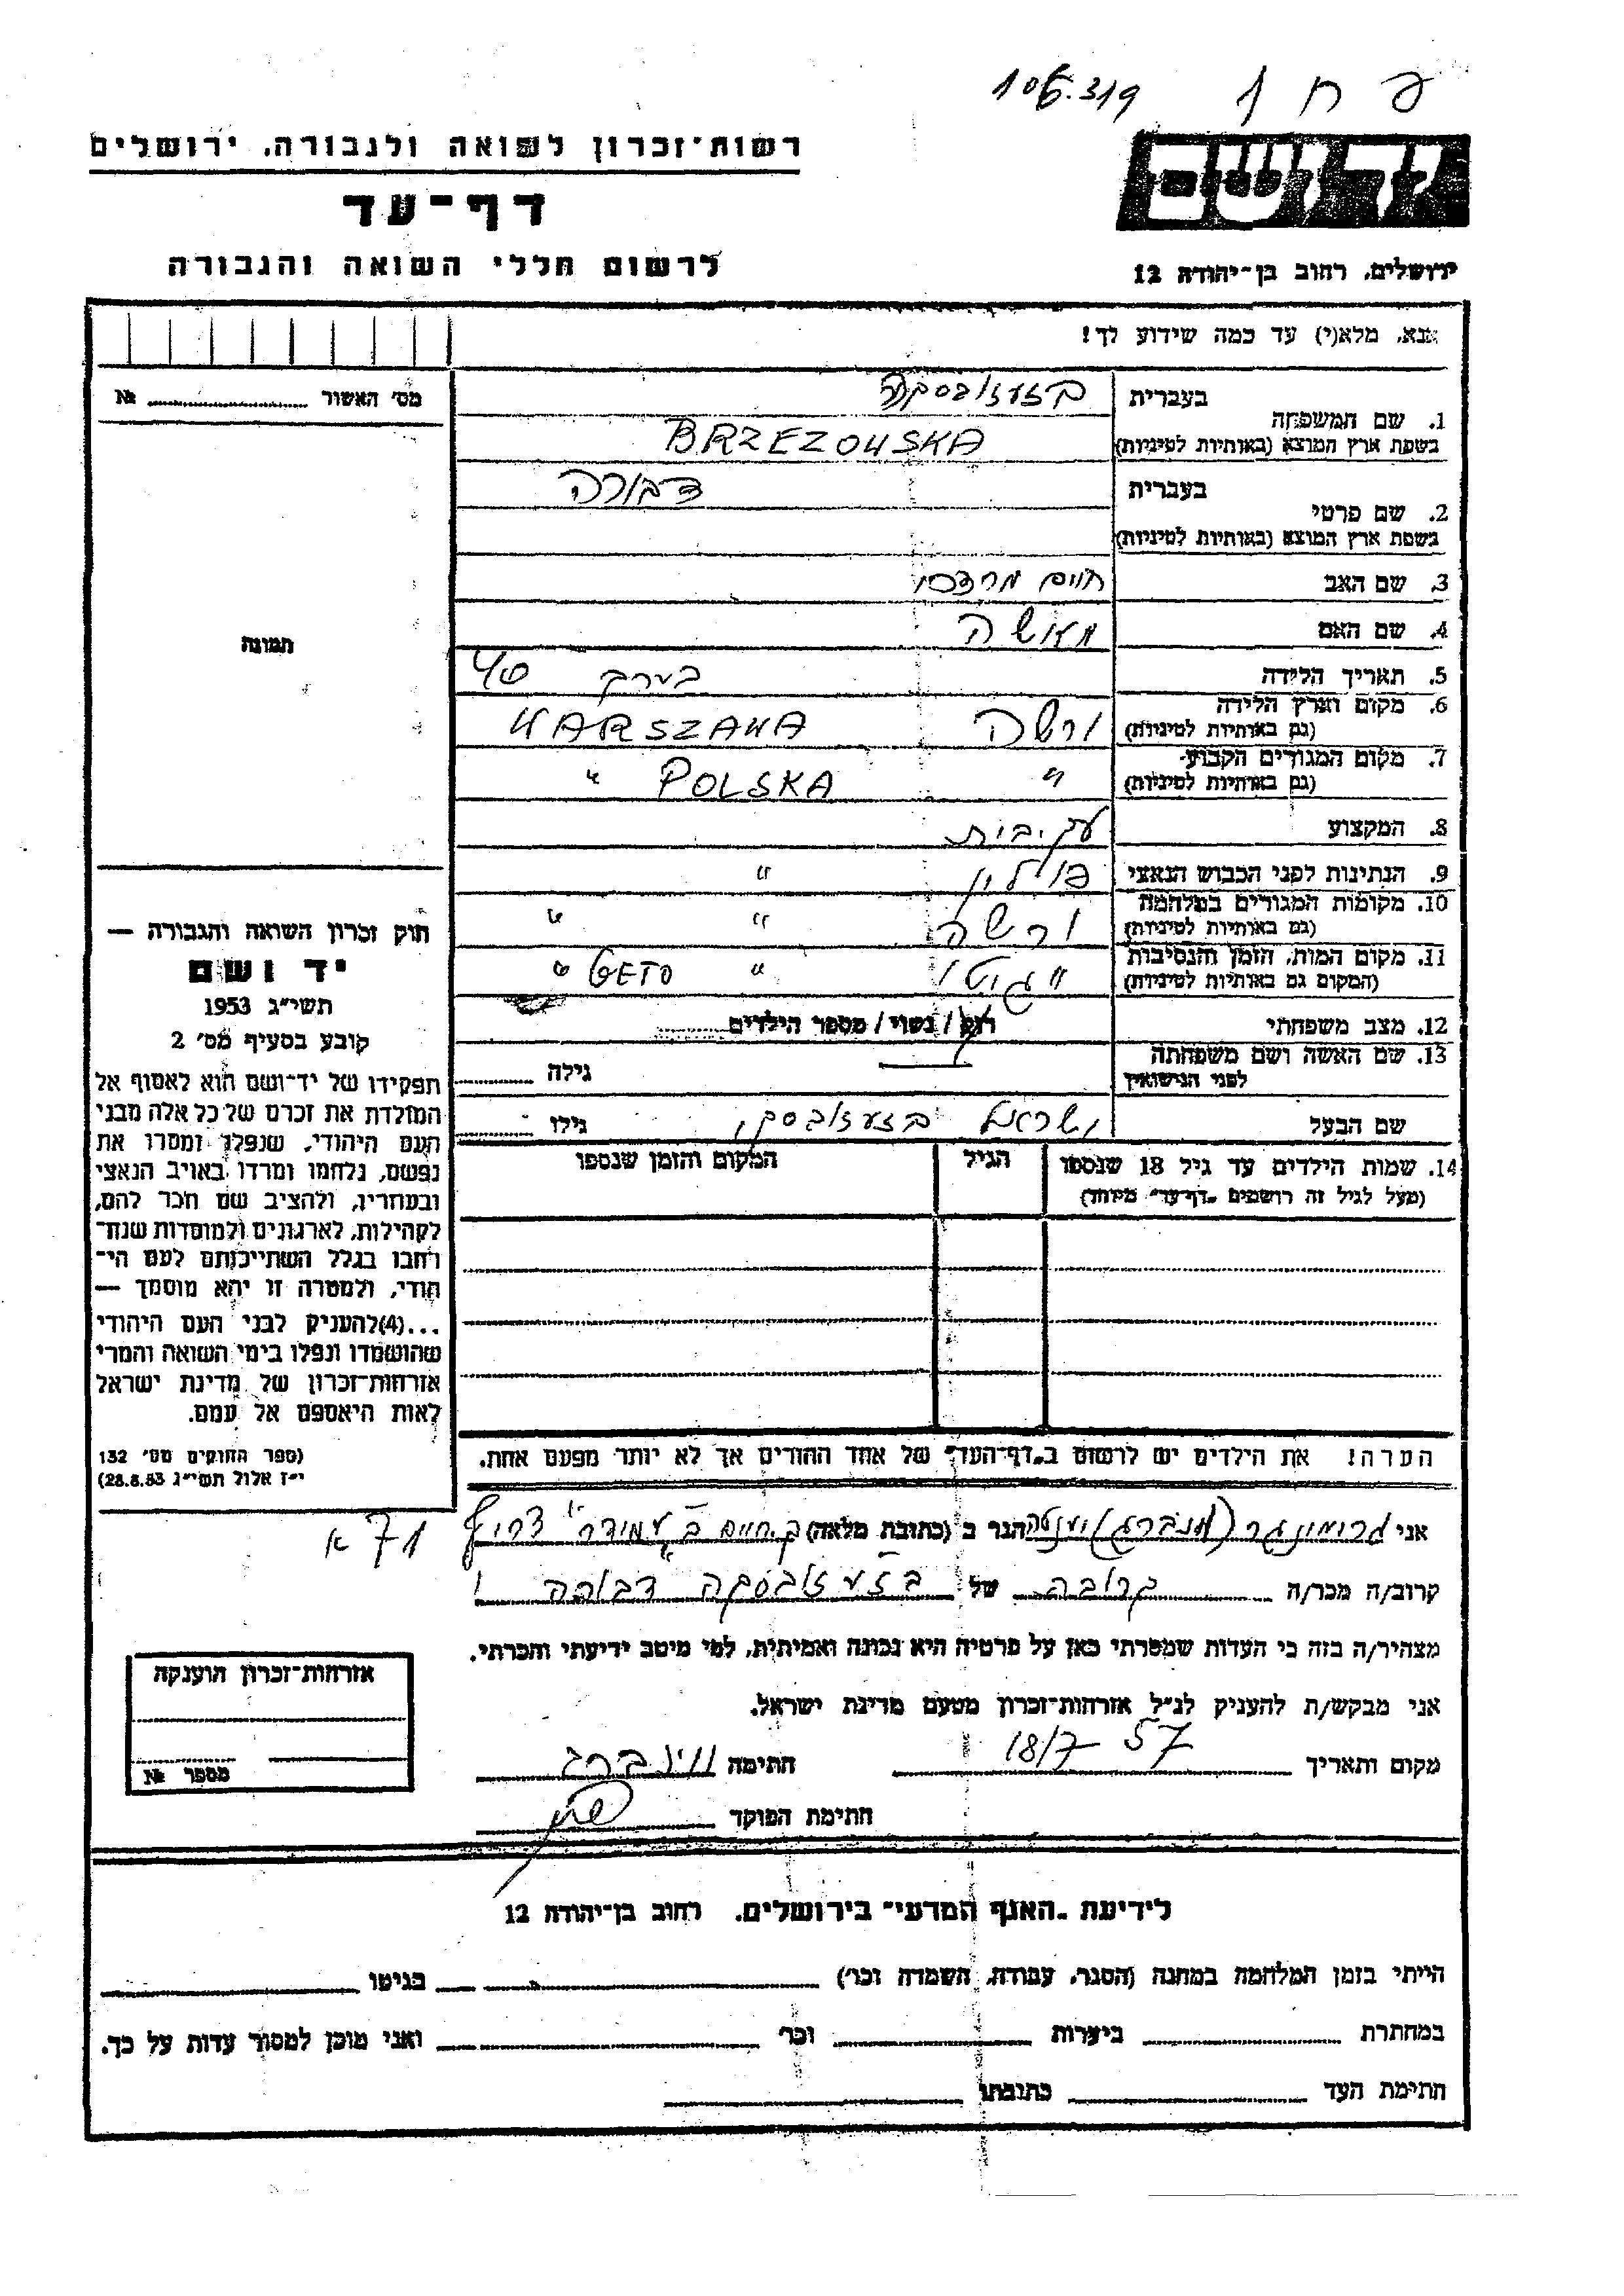 106.319
רשות־זכרון לשואה ולגבורה, ירושלים
יד ושם
דף־עד
לרשום חללי השואה והגבורה
ירושלים, רחוב בן־יהודה 12
אנא, מלא(י) עד כמה שידוע לך!
מס׳ האשור № 
1. שם המשפחה
בעברית ברזעזאבסקה
בשפת ארץ המוצא (באותיות לטיניות) BRZEZOWSKA
2. שם פרטי
בעברית דבורה
בשפת ארץ המוצא (באותיות לטיניות)
3. שם האב חיים מרדכי
4. שם האם
5. תאריך הלידה בערך 40
6. מקום וארץ הלידה (גם באותיות לטיניות) ורשה WARSZAWA
7. מקום המגורים הקבוע (גם באותיות לטיניות) " POLSKA "
8. המקצוע עק. בית
9. הנתינות לפני הכבוש הנאצי פולין "
10. מקומות המגורים במלחמה (גם באותיות לטיניות) ורשה " "
11. מקום המות, הזמן והנסיבות (המקום גם באותיות לטיניות) " גיטו " GETO "
12. מצב משפחתי רווק / נשוי / מספר הילדים
13. שם האשה ושם משפחתה לפני הנישואין גילה
שם הבעל ישראל בזעזאבסקי גילו
14. שמות הילדים עד גיל 18 שנספו
(מעל לגיל זה רושמים „דף־עד" מיוחד)
הגיל
המקום והזמן שנספו
תמונה
חוק זכרון השואה והגבורה —
יד ושם
תשי״ג 1953
קובע בסעיף מס׳ 2
תפקידו של יד־ושם הוא לאסוף אל
המולדת את זכרם של כל אלה מבני
העם היהודי, שנפלו ומסרו את
נפשם, נלחמו ומרדו באויב הנאצי
ובעוזריו, ולהציב שם וזכר להם,
לקהילות, לארגונים ולמוסדות שנח־
רחבו בגלל השתייכותם לעם הי־
הודי, ולמטרה זו יהא מוסמך —
...(4)להעניק לבני העם היהודי
שהושמדו ונפלו בימי השואה והמרי
אזרחות־זכרון של מדינת ישראל
לאות היאספם אל עמם.
(ספר החוקים מס׳ 132
י״ז אלול תשי״ג 28.8.53)
הערה! את הילדים יש לרשום ב„דף־העד" של אחד ההורים אך לא יותר מפעם אחת.
אני הגר ב (כתובת מלאה) ק. חיים ב׳ צריף
71 א
קרוב/ה מכר/ה קרובה של בזעזאבסקה דבורה
מצהיר/ה בזה כי העדות שמסרתי כאן על פרטיה היא נכונה ואמיתית, לפי מיטב ידיעתי והכרתי.
אני מבקש/ת להעניק לנ״ל אזרחות־זכרון מטעם מדינת ישראל.
מקום ותאריך 18/7 57 חתימה ווינברג
חתימת הפוקד
אזרחות־זכרון הוענקה
מספר №
לידיעת „האגף המדעי" בירושלים, רחוב בן־יהודה 12
הייתי בזמן המלחמה במחנה (הסגר, עבודה, השמדה וכו׳) בגיטו
במחתרת ביערות וכו׳ ואני מוכן למסור עדות על כך.
חתימת העד כתובתו